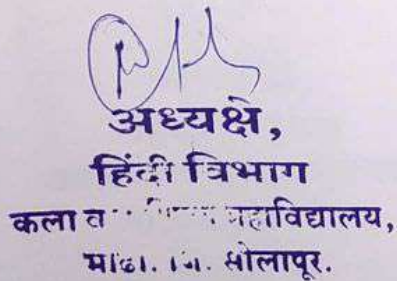 अध्यक्षे,
हिंदी विभाग
कला व महाविद्यालय,
माढा. जि. सोलापूर.